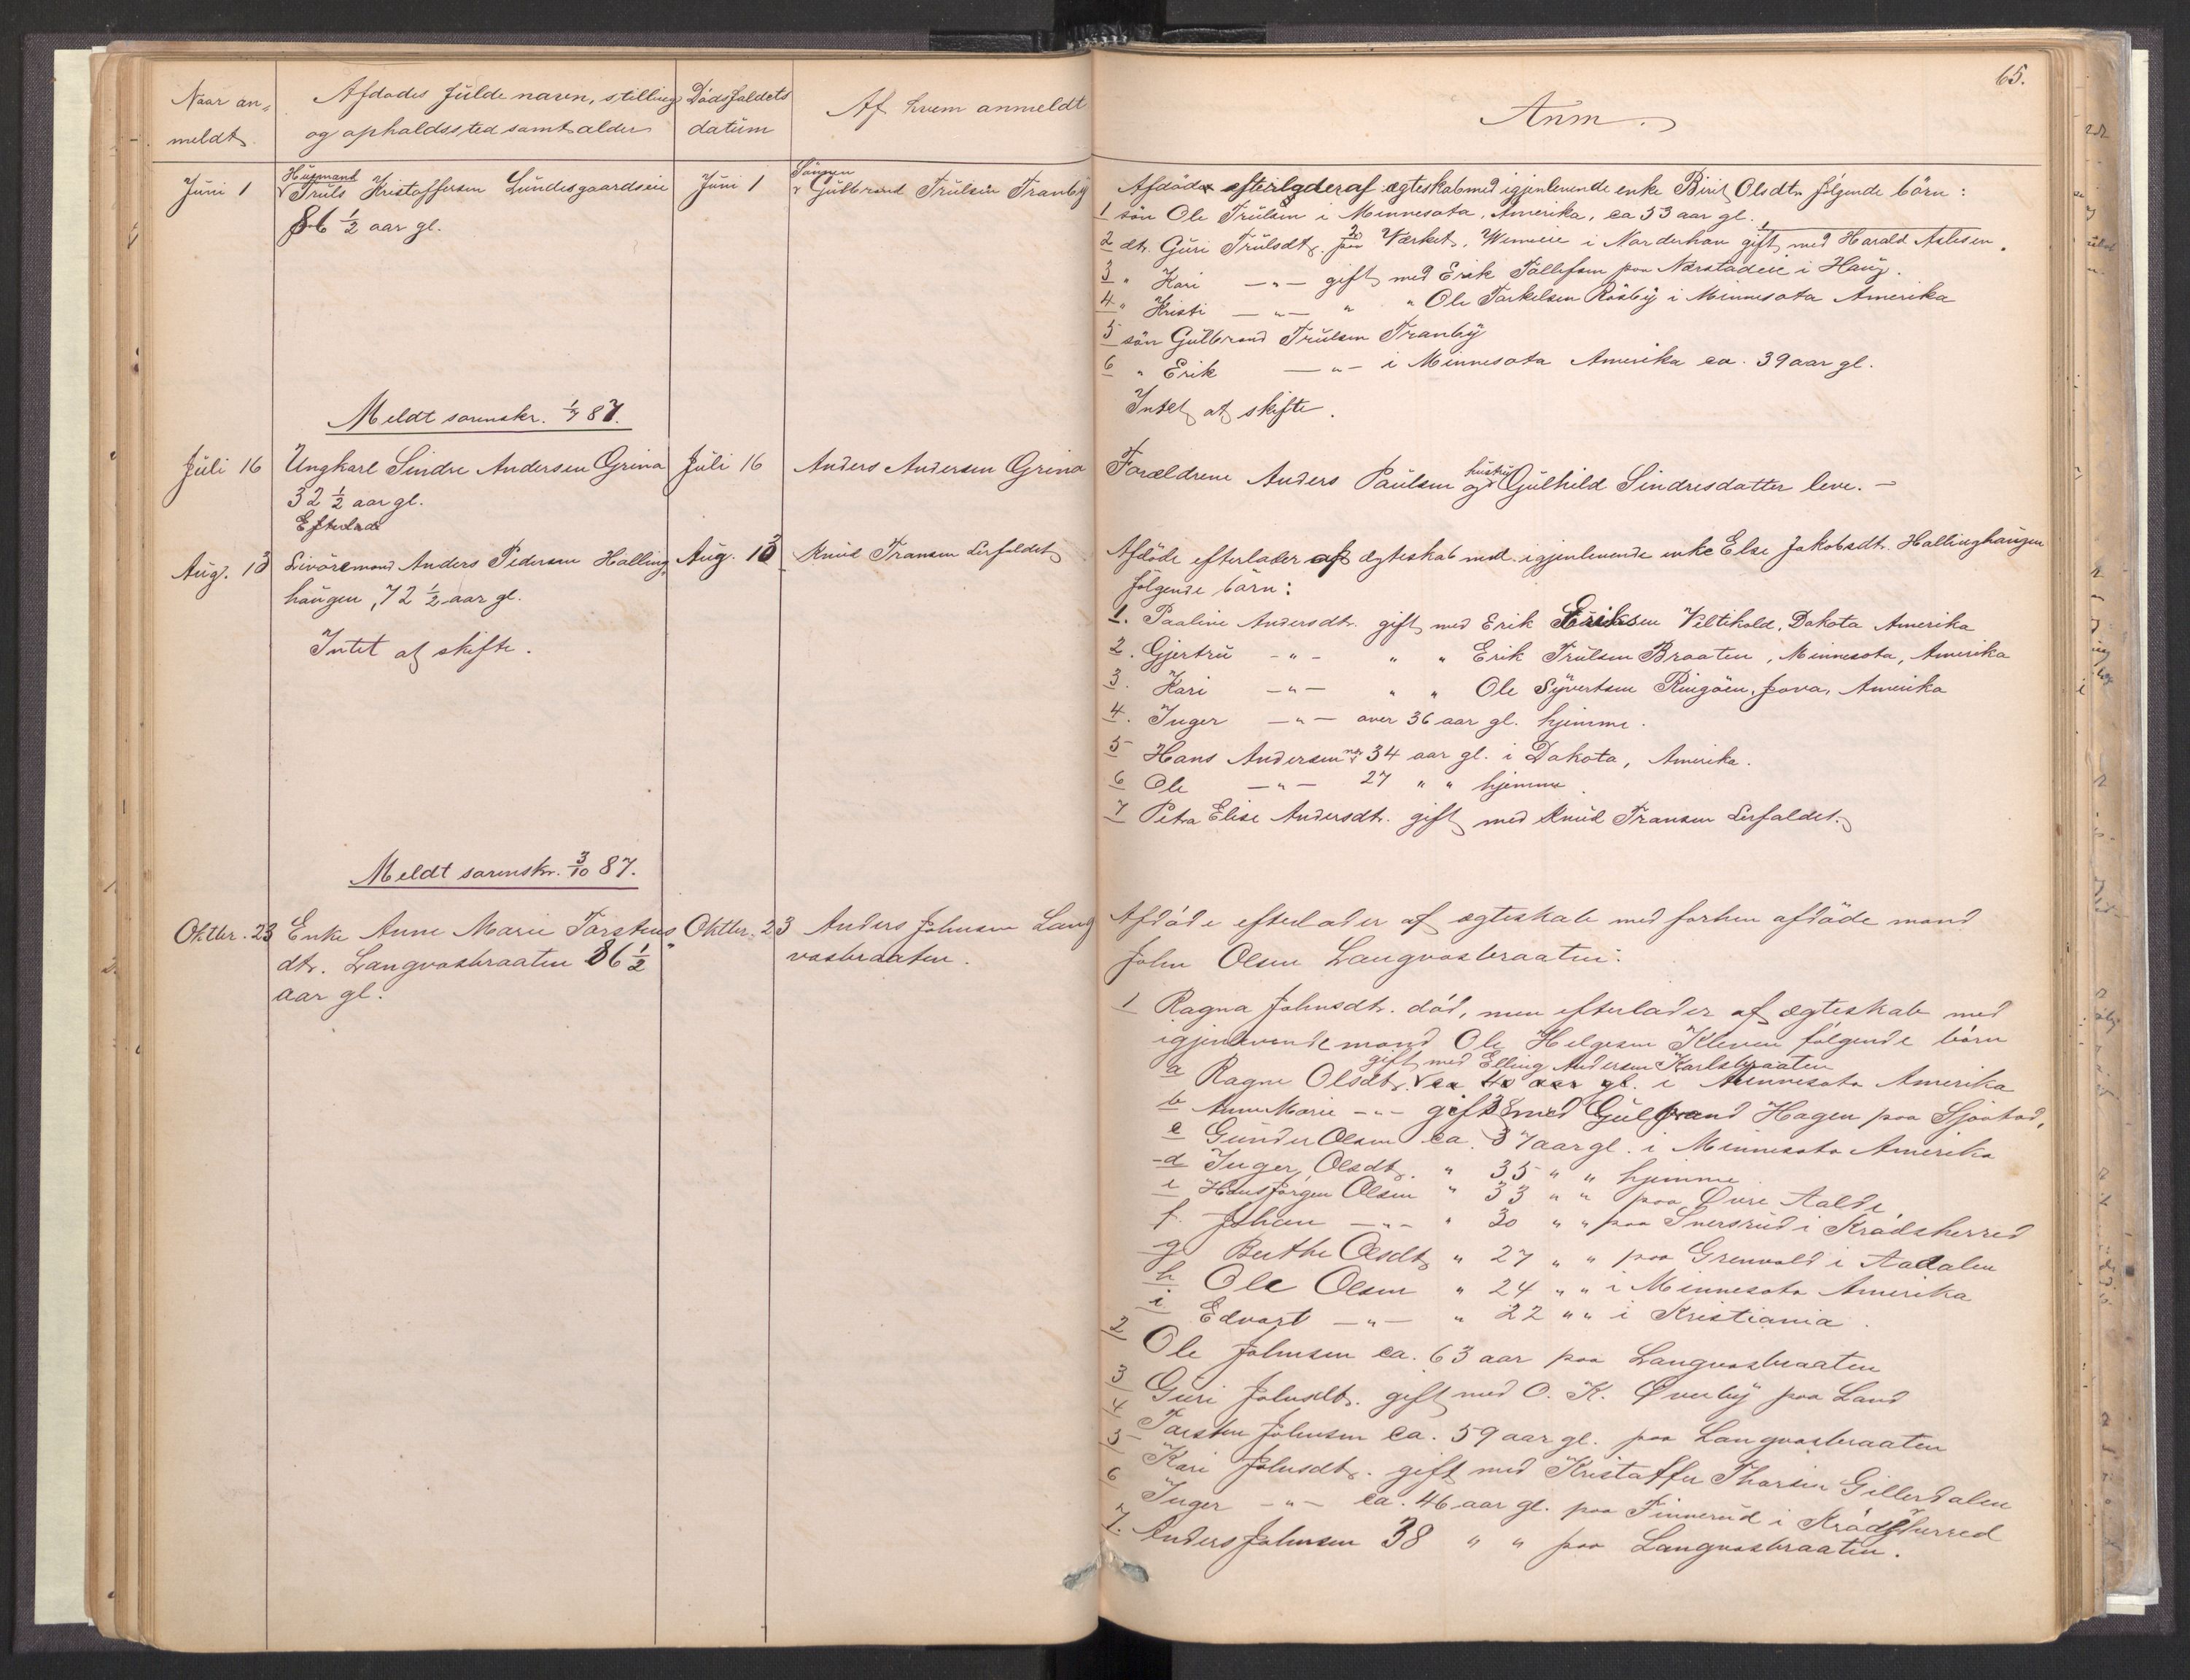 65.
Naar an-
meldt
Afdødes fulde navn, stilling
og opholdssted samt alder
Dødsfaldets
datum
Af hvem anmeldt
Anm.
Juni 1
Husmand
Truls Kristoffersen Lundesgaardseie
86 1/2 aar gl.
Juni 1
Sønnen
Gulbrand Trulsen Tranby
Afdøde efterlader af ægteskab med igjenlevende enke Birit Olsdtr. følgende børn:
1 søn Ole Trulsen i Minnesota, Amerika, ca 53 aar gl.
2 dtr. Guri Trulsdtr. paa Værket, i Norderhov gift med Harald Aslesen.
3 " Kari —"— gift med Erik Tollefsen paa Næstadeie i Haug.
4 " Kristi —"— " " Ole Torkelsen Rösby i Minnesota Amerika
5 søn Gulbrand Trulsen Tranby
6 " Erik —"— i Minnesota Amerika ca. 39 aar gl.
Intet at skifte.
Meldt sorenskr. 1/7 87.
Juli 16
Ungkarl Sindre Andersen Grina
32 1/2 aar gl.
Efterlade
Juli 16
Anders Andersen Grina
hustru
Forældrene Anders Paulsen og Gulhild Sindresdatter leve. —
Aug. 13
Livøremand Anders Pedersen Halling-
haugen, 72 1/2 aar gl.
Intet at skifte.
Aug. 13
Knud Fransen Lerfaldet
Afdøde efterlader af ægteskab med igjenlevende enke Else Jakobsdtr. Hallinghaugen
følgende børn:
1. Pauline Andersdtr. gift med Erik Eriksen Veltikold, Dakota Amerika
2. Gjertru -"- " " Erik Trulsen Braaten, Minnesota, Amerika
3. Kari —"— " " Ole Syvertsen Ringöen, Jova, Amerika
4. Inger —"— over 36 aar gl. hjemme.
5 Hans Andersen 34 aar gl. i Dakota, Amerika.
6 Ole —"— 27 " " hjemme.
7 Petra Elise Andersdtr. gift med Knud Fransen Lerfaldet.
Meldt sorenskr. 3/10 87.
Oktbr. 23
Enke Anne Marie Torstens-
dtr. Langvasbraaten 86 1/2
aar gl.
Oktbr. 23
Anders Johnsen Lang
vasbraaten.
Afdøde efterlader af ægteskab med forhen afdøde mand
John Olsen Langvasbraaten:
1 Ragna Johnsdtr. død, men efterlader af ægteskab med
igjenlevende mand Ole Helgesen Kleven følgende børn
gift med Elling Andersen Karlsbraaten
a Ragne Olsdtr. ca 40 aar gl. i Minnesota Amerika
b Anne Marie -"- gift med Gulbrand Hagen paa Sjøotad,
c Gunder Olsen ca. 37 aar gl. i Minnesota Amerika
d Inger Olsdtr. " 35 " " hjemme
e Hans Jørgen Olsen " 33 " " paa Øvre Aalde
f. Johan —"— " 30 " " paa Snersrud i Krødsherred
g Berthe Olsdtr " 27 " " paa Grenvold i Aadalen
h Ole Olsen " 24 " " i Minnesota Amerika
i Edvart —"— " 22 " " i Kristiania.
2 Ole Johnsen ca. 63 aar paa Langvasbraaten
3 Guri Johnsdtr. gift med O. K. Øverby paa Land
4 Torsten Johnsen ca. 59 aar gl. paa Langvasbraaten
5 Kari Johnsdtr. gift med Kristoffer Thorsen Gillerdalen
6 Inger -"- ca. 46 aar gl. paa Finnerud i Krødsherred
7. Anders Johnsen 38 " " paa Langvasbraaten.